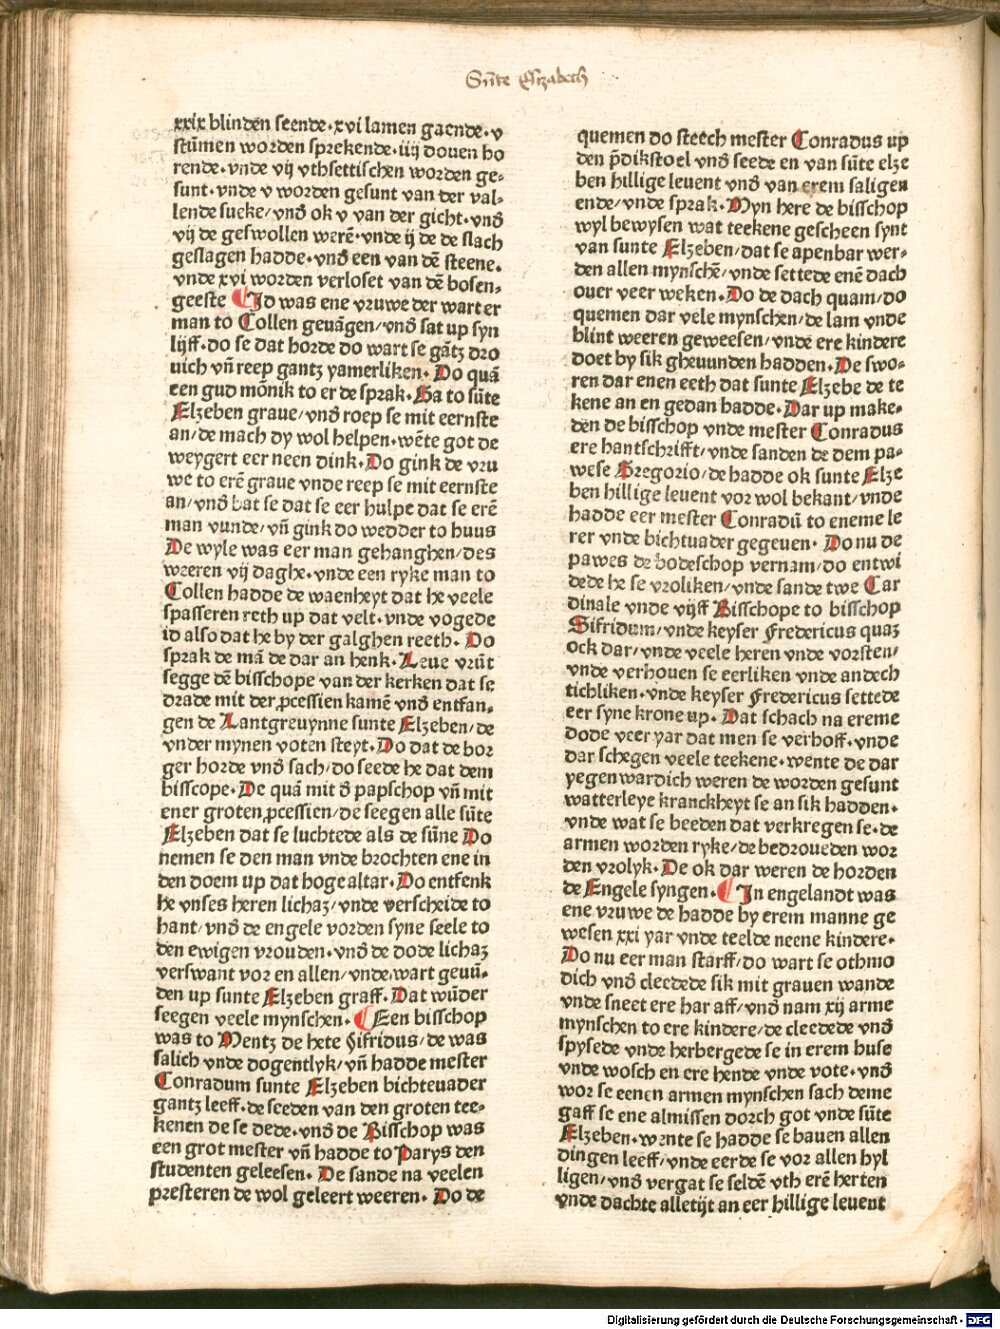 Sūte Elzabeth
xxix blinden seende·xvi lamen gaende·v
stūmen worden sprekende·iiij douen ho
rende·vnde vij vthsettischen worden ge⸗
sunt·vnde v worden gesunt van der val⸗
lende sueke/vnd̄ ok v van der gicht·vnd̄
vij de geswollen werē·vnde ij de de slach
geslagen hadde·vnd̄ een van dē steene·
vnde xvi worden verloset van dē bosen⸗
geeste ¶ Id was ene vruwe der wart er
man to Collen geuāgen/vnd̄ sat up syn
lijff·do se dat horde do wart se gātz dro
uich vn̄ reep gantz yamerliken· Do quā
een gud mōnik to er de sprak·Ga to sūte
Elzeben graue/vnd̄ roep se mit eernste
an/de mach dy wol helpen·wēte got de
weygert eer neen dink·Do gink de vru
we to erē graue vnde reep se mit eernste
an/vnd̄ bat se dat se eer hulpe dat se erē
man vunde/vn̄ gink do wedder to huus
De wyle was eer man gehanghen/des
weeren vij daghe·vnde een ryke man to
Collen hadde de waenheyt dat he veele
spasseren reth up dat velt·vnde vogede
id also dat he by der galghen reeth· Do
sprak de mā de dar an henk·Leue vrūt
segge dē bisschope van der kerken dat se
drade mit der ꝓcessien kamē vnd̄ entfan⸗
gen de Lantgreuynne sunte Elzeben/de
vnder mynen voten steyt·Do dat de bor
ger horde vnd̄ sach/do seede he dat dem
bisscope·De quā mit d̄ papschop vn̄ mit
ener groten ꝓcessien/de seegen alle sūte
Elzeben dat se luchtede als de sūne Do
nemen se den man vnde brochten ene in
den doem up dat hoge altar·Do entfenk
he vnses heren lichaz/vnde verscheide to
hant/vnd̄ de engele vorden syne seele to
den ewigen vrouden·vnd̄ de dode lichaz
verswant vor en allen/vnde wart geuū⸗
den up sunte Elzeben graff·Dat wūder
seegen veele mynschen·¶ Een bisschop
was to Mentz de hete Sifridus/de was
salich vnde dogentlyk/vn̄ hadde mester
Conradum sunte Elzeben bichteuader
gantz leeff·de seeden van den groten tee⸗
kenen de se dede·vnd̄ de Bisschop was
een grot mester vn̄ hadde to Parys den
studenten geleesen· De sande na veelen
presteren de wol geleert weeren· Do de
quemen do steech mester Conradus up
den p̄dikstoel vnd̄ seede en van sūte elze
ben hillige leuent vnd̄ van erem saligen
ende/vnde sprak·Myn here de bisschop
wyl bewysen wat teekene gescheen synt
van sunte Elzeben/dat se apenbar wer⸗
den allen mynschē/vnde settede enē dach
ouer veer weken·Do de dach quam/do
quemen dar vele mynschen/de lam vnde
blint weeren geweesen/vnde ere kindere
doet by sik gheuunden hadden·De swo⸗
ren dar enen eeth dat sunte Elzebe de te
kene an en gedan hadde·Dar up make⸗
den de bisschop vnde mester Conradus
ere hantschrifft/vnde sanden de dem pa⸗
wese Gregorio/de hadde ok sunte Elze
ben hillige leuent vor wol bekant/vnde
hadde eer mester Conradū to eneme le
rer vnde bichtuader gegeuen· Do nu de
pawes de bodeschop vernam/do entwi
dede he se vroliken/vnde sande twe Car
dinale vnde vijff Bisschope to bisschop
Sifridum/vnde keyser Fredericus quaz
ock dar/vnde veele heren vnde vorsten/
vnde verhouen se eerliken vnde andech
tichliken·vnde keyser Fredericus settede
eer syne krone up· Dat schach na ereme
dode veer yar dat men se verhoff·vnde
dar schegen veele teekene·wente de dar
yegenwardich weren de worden gesunt
watterleye kranckheyt se an sik hadden·
vnde wat se beeden dat verkregen se·de
armen worden ryke/de bedroueden wor
den vrolyk·De ok dar weren de horden
de Engele syngen·¶ In engelandt was
ene vruwe de hadde by erem manne ge
wesen xxi yar vnde teelde neene kindere·
Do nu eer man starff/do wart se othmo
dich vnd̄ cleedede sik mit grauen wande
vnde sneet ere har aff/vnd̄ nam xij arme
mynschen to ere kindere/de cleedede vnd̄
spysede vnde herbergede se in erem huse
vnde wosch en ere hende vnde vote·vnd̄
wor se eenen armen mynschen sach deme
gaff se ene almissen dorch got vnde sūte
Elzeben·wente se hadde se bauen allen
dingen leeff/vnde eerde se vor allen hyl
ligen/vnd̄ vergat se seldē vth erē herten
vnde dachte alletijt an eer hillige leuent
Digitalisierung gefördert durch die Deutsche Forschungsgemeinschaft - DFG